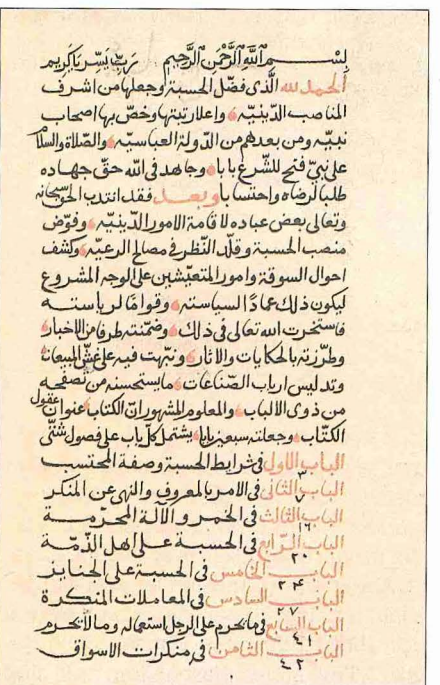 بسم الله الرحمن الرحيم رب يسر يا كريم
الحمد لله الذى فضل الحسبة وجعلها من اشرف
المناصب الدينيه واعلا رتبتها وخص بها اصحاب
نبيه ومن بعدهم من الدولة العباسيه والصلاة والسلام
على نبى فتح للشرع بابا وجاهد فى الله حق جهاده
طلبا لرضاه واحتسابا وبعد فقد انتدب الحق سبحانه
وتعالى بعض عباده لاقامة الامور الدينيه وفوض
منصب الحسبة وقلد النظر فى مصالح الرعيه وكشف
احوال السوقة وامور المتعيشين على الوجه المشروع
ليكون ذلك عمادا لسياسته وقواما لرياسته
فاستخرت الله تعالى فى ذلك وضمنته طرفا من الاخبار
وطرزته بالحكايات والاثار ونبهت فيه على غش المبيعات
وتدليس ارباب الصناعات ما يستحسنه من تصفحه
من ذوى الالباب والمعلوم المشهور ان الكتاب عنوان عقول
الكتاب وجعلته سبعين بابا يشتمل كل باب على فصول شتى
الباب الاول فى شرايط الحسبة وصفة المحتسب
٣
الباب الثانى فى الامر بالمعروف والنهى عن المنكر
٧
الباب الثالث فى الخمر والالة المحرمة
١٦
الباب الرابع فى الحسبة على اهل الذمة
٢٠
الباب الخامس فى الحسبة على الجنايز
٢۴
الباب السادس فى المعاملات المنكرة
٢٧
الباب السابع فى ما يحرم على الرجل استعماله وما لا يحرم
٤١
الباب الثامن فى منكرات الاسواق
٤٢